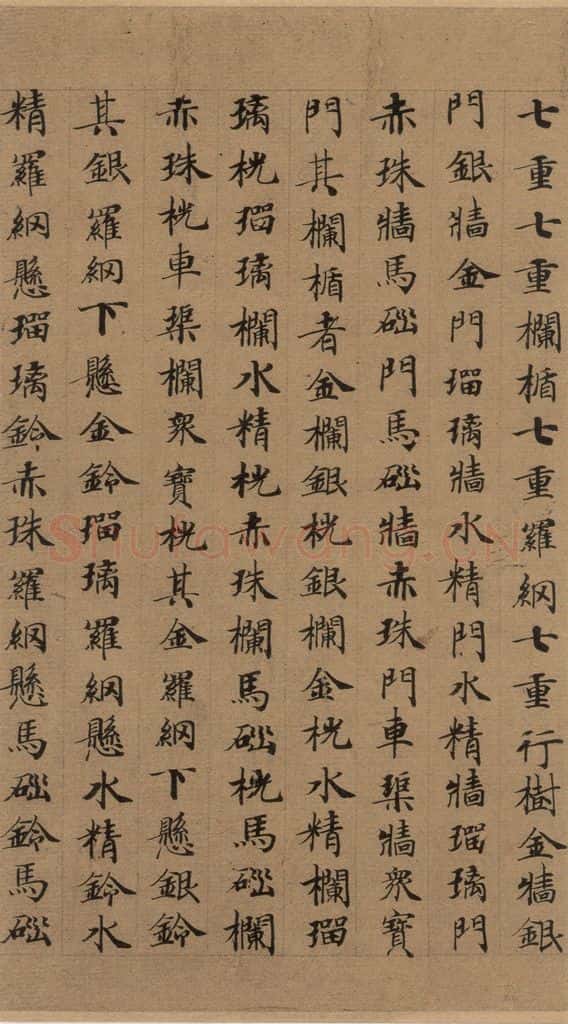 七重七重欄楯七重羅網七重行樹金牆銀
門銀牆金門瑠璃牆水精門水精牆瑠璃門
赤珠牆馬碯門馬碯牆赤珠門車𤦲牆衆寶
門其欄楯者金欄銀桄銀欄金桄水精欄瑠
璃桄瑠璃欄水精桄赤珠欄馬碯桄馬碯欄
赤珠桄車𤦲欄衆寶桄其金羅網下懸銀鈴
其銀羅網下懸金鈴瑠璃羅網懸水精鈴水
精羅網懸瑠璃鈴赤珠羅網懸馬碯鈴馬碯
Shufawang.CN